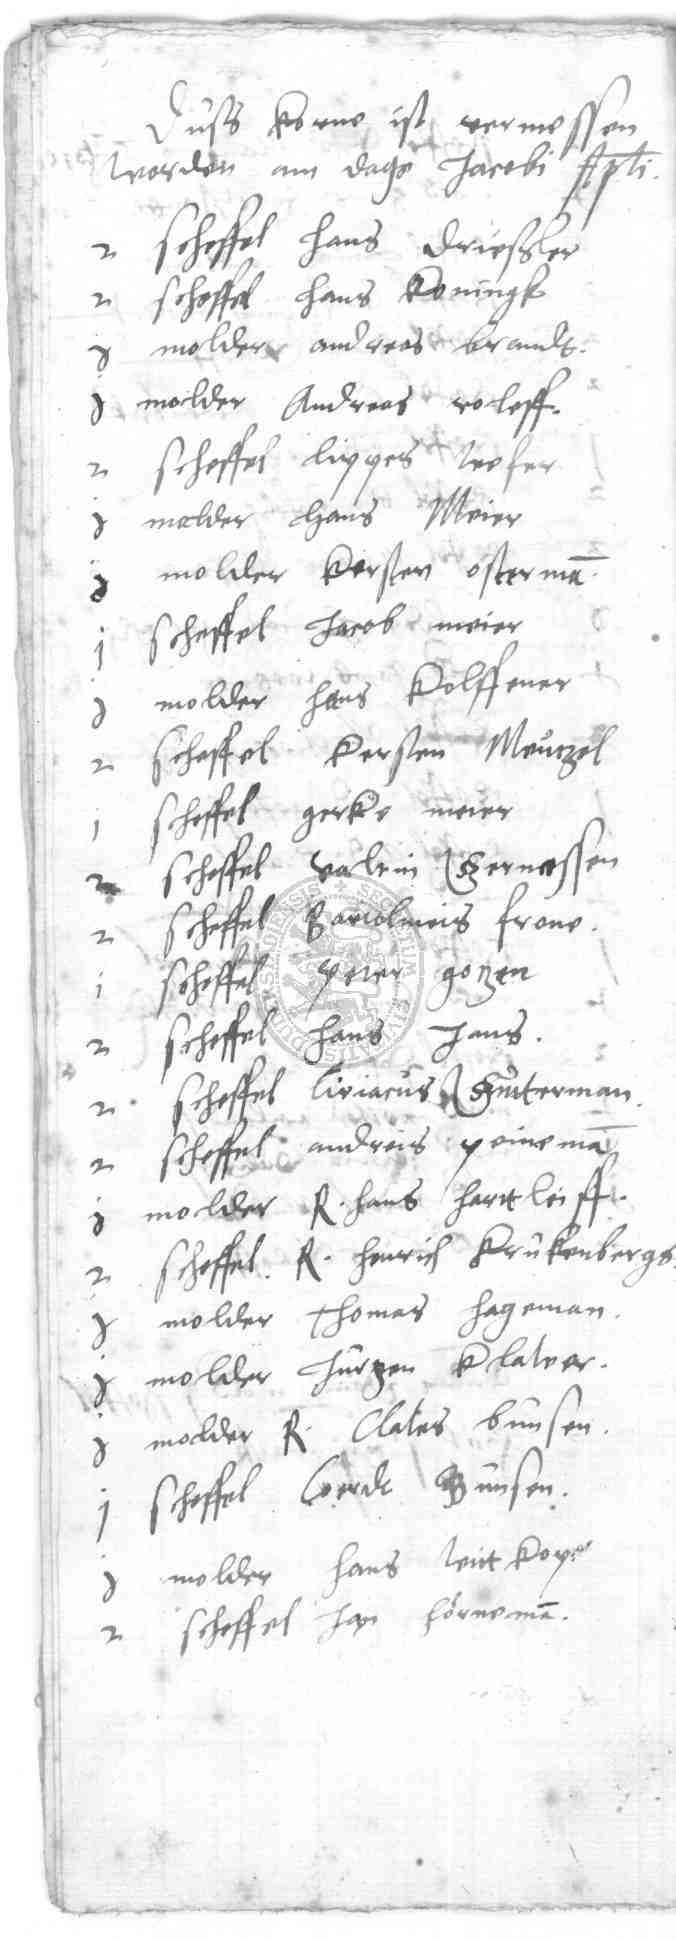 Duss korne ist vermessen
worden am dage Jacobi Apli.
2 scheffel hans Driessler
2 scheffel hans koningk
j molder andreas brandt.
j molder Andreas roleff.
2 scheffel lippes weser
j molder hans Meier
j molder kersten osterma͞.
j scheffel Jacob meier
j molder hans kolffener
2 scheffel kersten Meutzel
j scheffel gerke meier
2 scheffel valtin
2 scheffel Bartolmeis frone.
j scheffel peter gotzen
2 scheffel hans Jans.
2 scheffel Ciriacus Suterman.
2 scheffel andreis peinema͞
j molder R. hans hartleiff.
2 scheffel. R. henrich krukenbergs.
j molder Thomas hageman.
j molder Jurgen klawer.
j molder R. Clawes bunsen.
j scheffel Cordt Bunsen.
j molder hans witkop
2 scheffel Jan hornema͞.